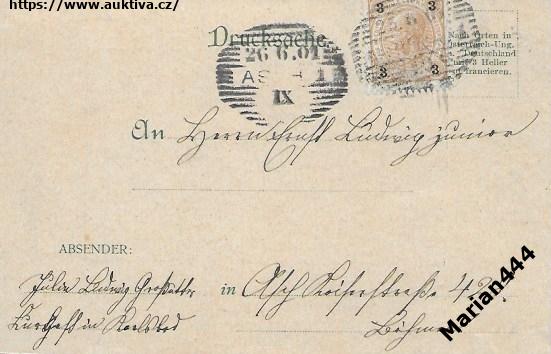 https://www.auktiva.cz/
Drucksache
3 3
3 3
Nach Orten in
Österreich-Ung.
Deutschland
mit 3 Heller
zu francieren.
26 6.01
AS H 1
IX
An Herrn Ernst Ludwig junior
ABSENDER:
Julie Ludwig
Kurhaus in Karlsbad
in Asch Kaiserstraße 42.
Böhmen
Marian444